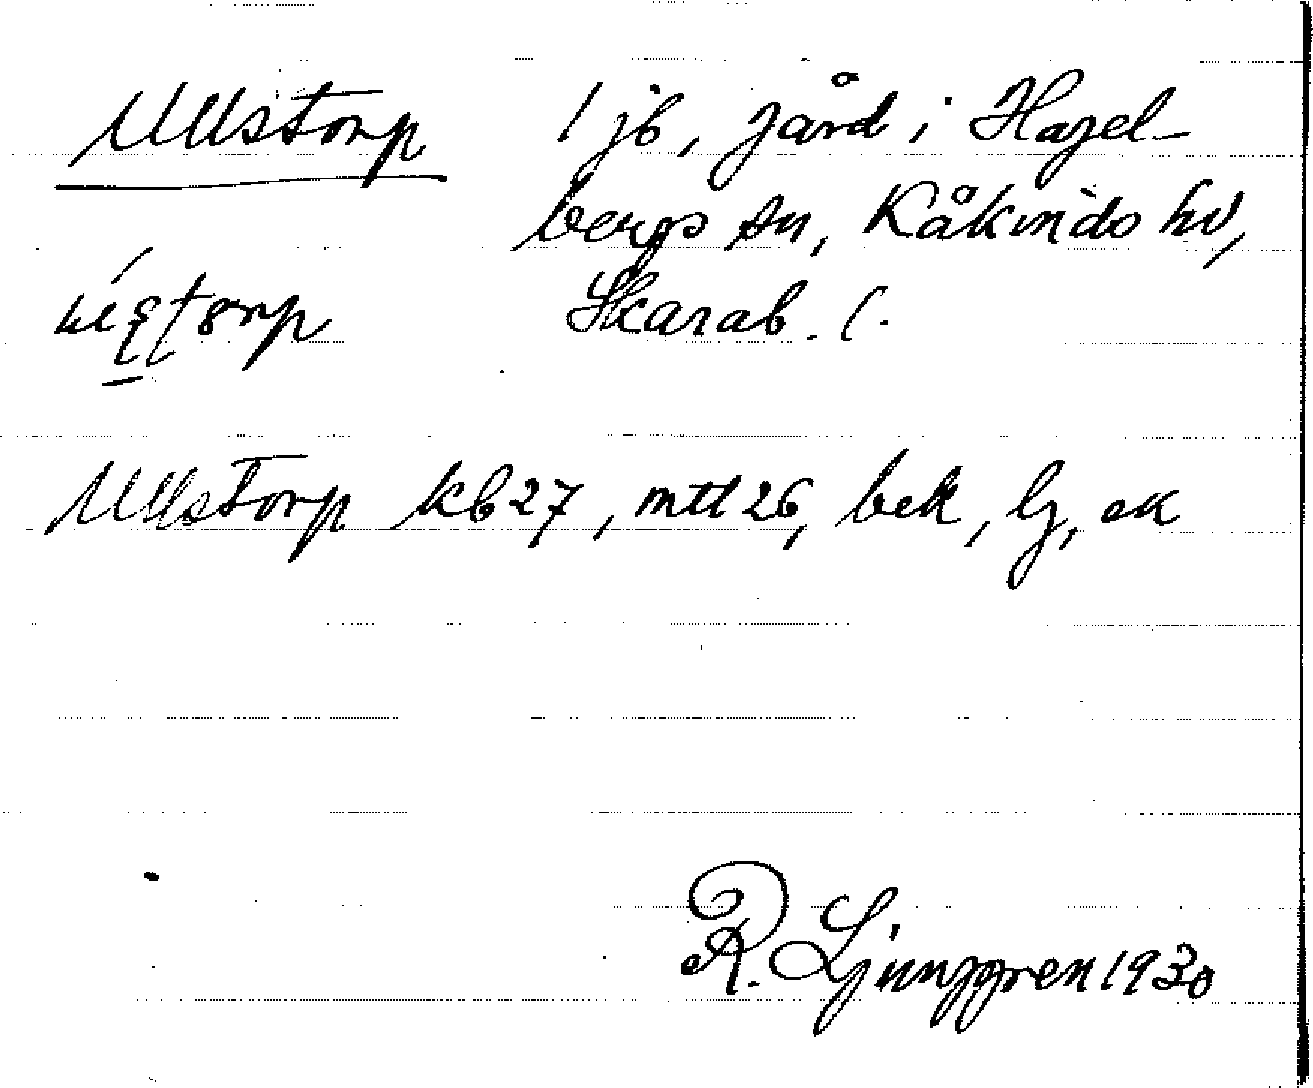 Ullstorp 1 jb, gård i Hagel-
bergs sn, Kåkinds hd,
Skarab. l.
Ullstorp kb 27, mtl 26, bek, lg, ek
R. Ljunggren 1930